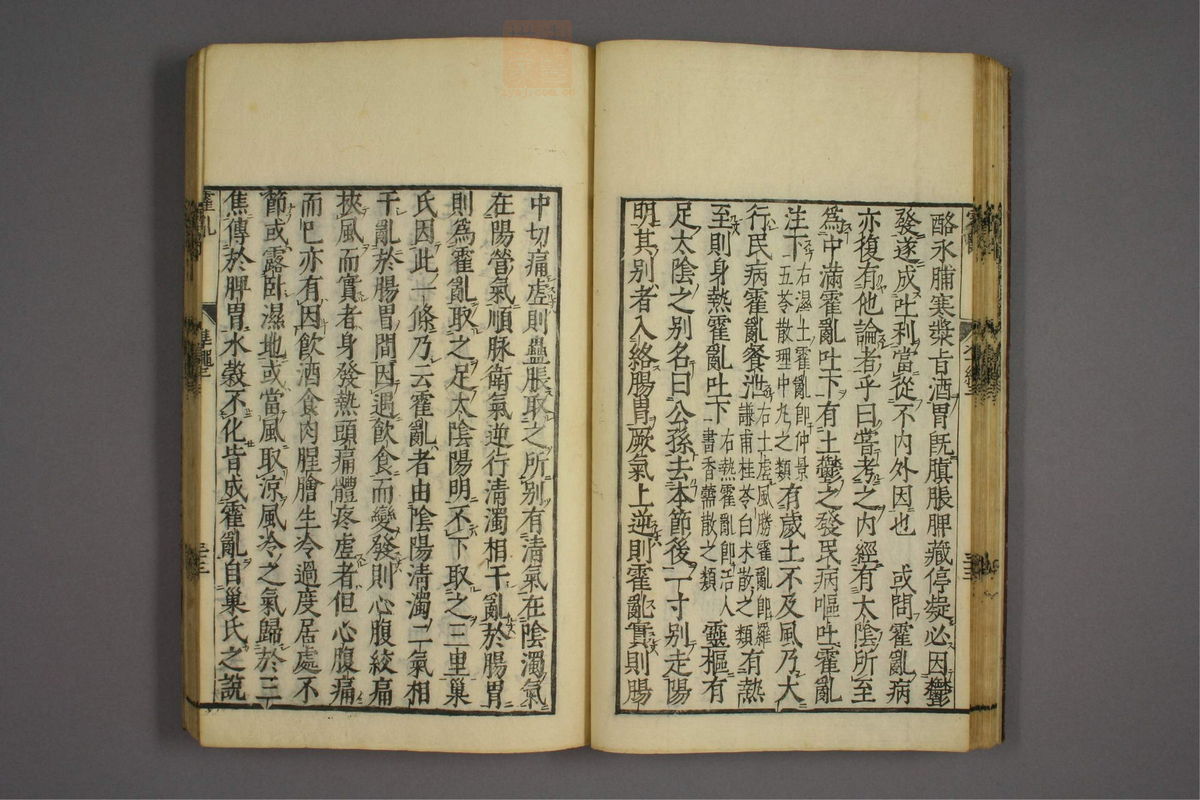 酪水脯寒漿旨酒胃既䐜脹脾藏停凝必因鬱
發遂成吐利當從不内外因也　或問霍亂病
亦復有他論者乎曰嘗考之内經有太陰所至
爲中滿霍亂吐下有土鬱之發民病嘔吐霍亂
注下右濕土霍亂卽仲景五苓散理中丸之類有歲土不及風乃大
行民病霍亂飧泄右土虚風勝霍亂卽羅謙甫桂苓白术散之類有熱
至則身熱霍亂吐下右熱霍亂卽活人書香薷散之類　靈樞有
足太陰之别名曰公孫去本節後一寸别走陽
明其别者入絡腸胃厥氣上逆則霍亂實則腸
中切痛虚則蠱脹取之所别有清氣在陰濁氣
在陽營氣順脉衛氣逆行清濁相干亂於腸胃
則爲霍亂取之足太陰陽明不下取之三里巢
氏因此一條乃云霍亂者由陰陽清濁二氣相
干亂於腸胃間因遇飲食而變發則心腹絞痛
挾風而實者身發熱頭痛體疼虚者但心腹痛
而已亦有因飲酒食肉腥膾生冷過度居處不
節或露卧濕地或當風取涼風冷之氣歸於三
焦傳於脾胃水穀不化皆成霍亂自巢氏之說
霍亂
凖繩
三三